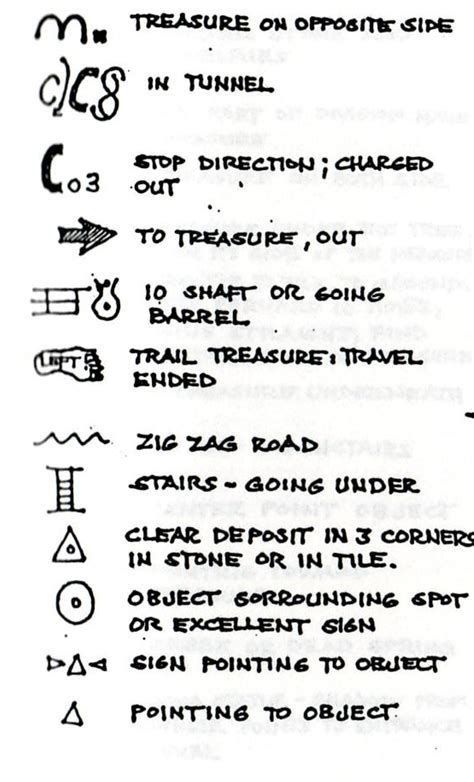 TREASURE ON OPPOSITE SIDE
IN TUNNEL
STOP DIRECTION; CHARGED
OUT
TO TREASURE, OUT
10 SHAFT OR GOING
BARREL
TRAIL TREASURE: TRAVEL
ENDED
ZIG ZAG ROAD
STAIRS - GOING UNDER
CLEAR DEPOSIT IN 3 CORNERS
IN STONE OR IN TILE.
OBJECT SORROUNDING SPOT
OR EXCELLENT SIGN
SIGN POINTING TO OBJECT
POINTING TO OBJECT.